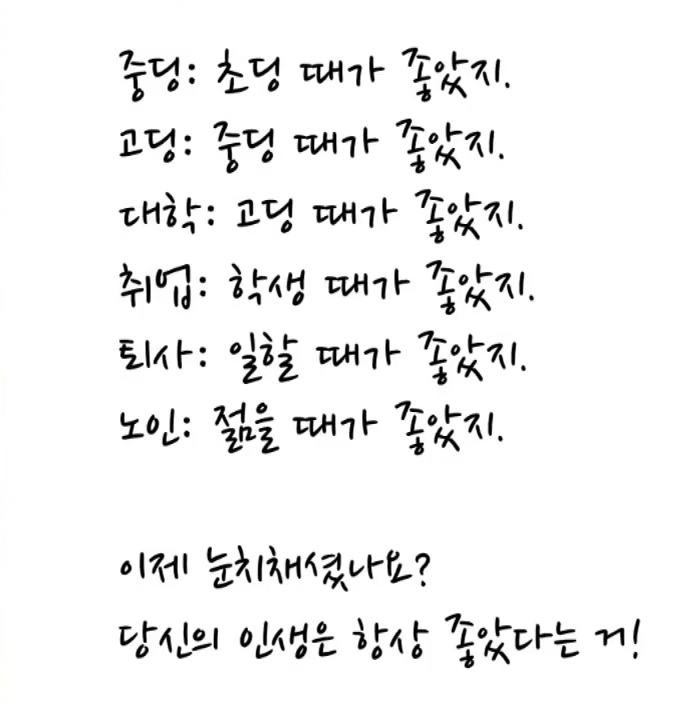 중딩: 초딩 때가 좋았지.
고딩: 중딩 때가 좋았지.
대학: 고딩 때가 좋았지.
취업: 학생 때가 좋았지.
퇴사: 일할 때가 좋았지.
노인: 젊을 때가 좋았지.
이제 눈치채셨나요?
당신의 인생은 항상 좋았다는 거!